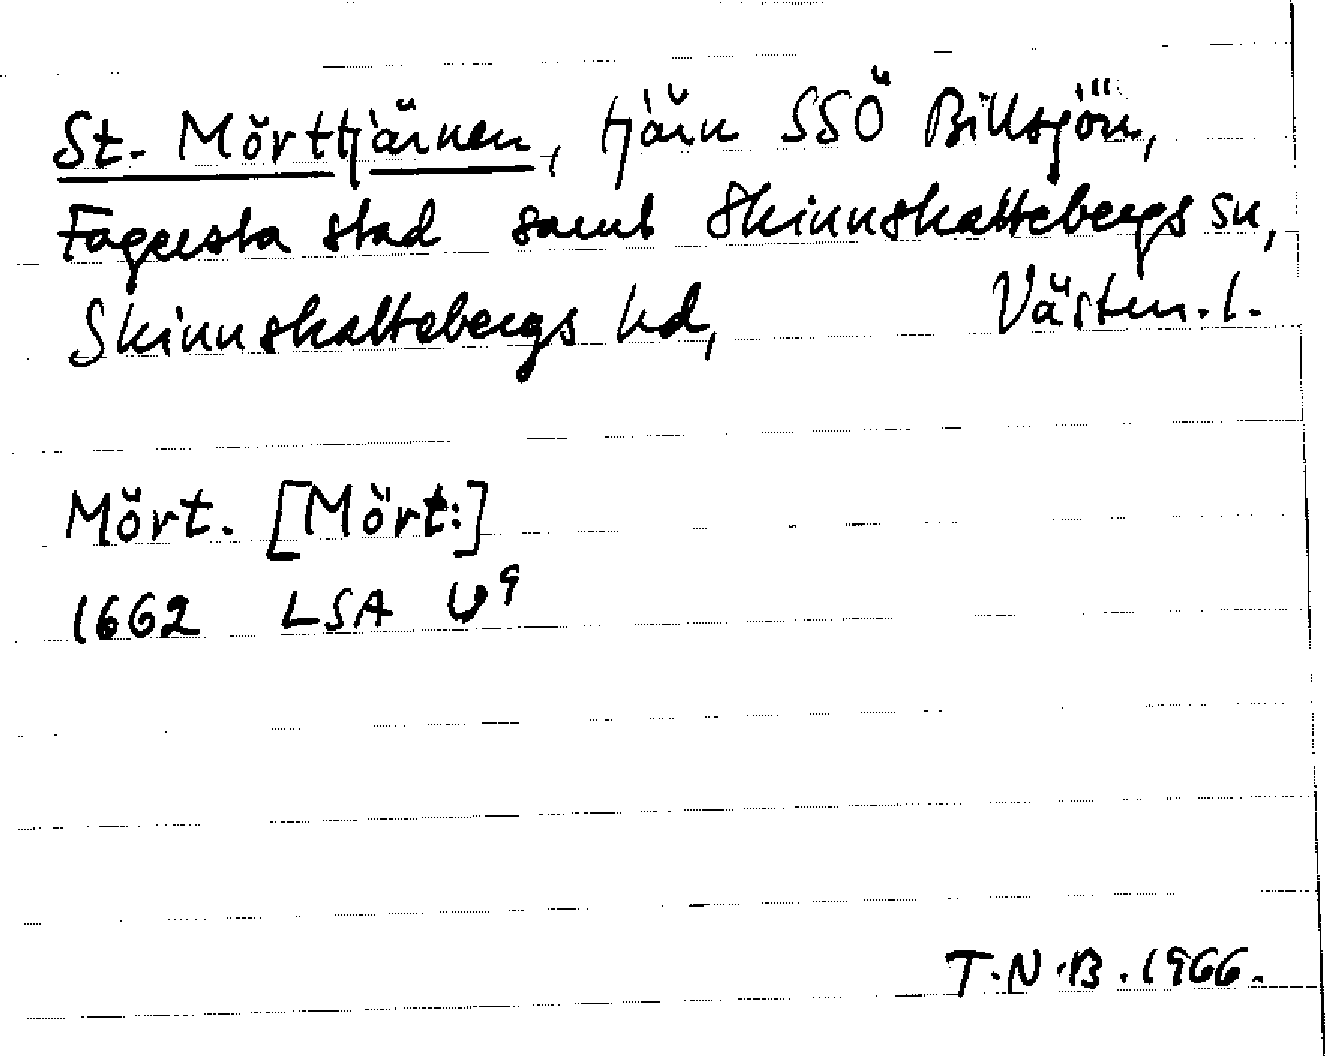 St. Mörttjärnen, tjärn SSÖ Billsjön,
Fagersta stad samt Skinnskattebergs sn,
Skinnskattebergs hd, Västm. l.
Mört. [Mört:]
1662 LSA U9
T.N.B. 1966.